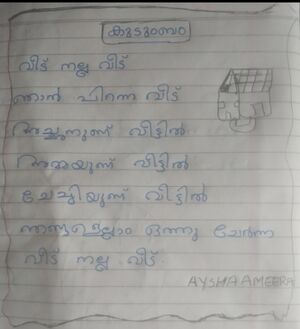 കുടുംബം
വീട് നല്ല വീട്
ഞാൻ പിറന്ന വീട്
അച്ഛനുണ്ട് വീട്ടിൽ
അമ്മയുണ്ട് വീട്ടിൽ
ചേച്ചിയുണ്ട് വീട്ടിൽ
ഞങ്ങളെല്ലാം ഒന്നു ചേർന്ന
വീട് നല്ല വീട്.
AYSHA AMEERA